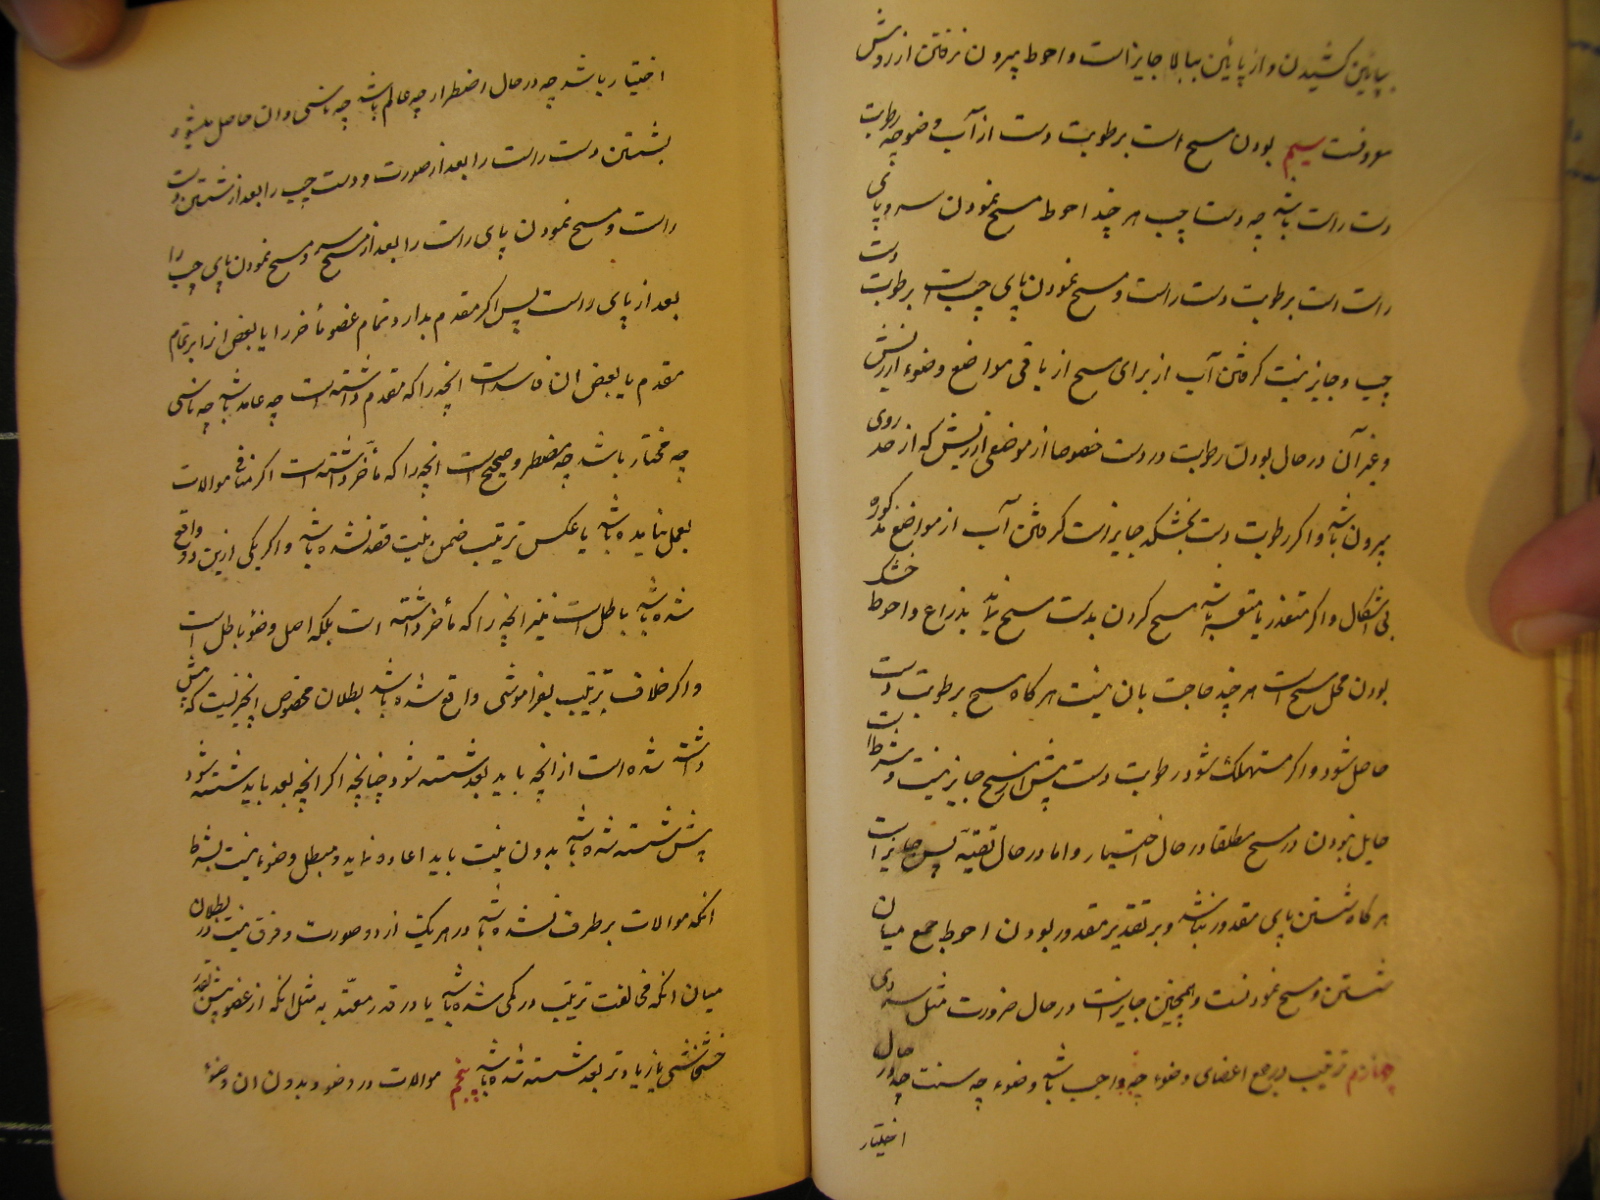 بپایین کشیدن و از پایین ببالا جایز است و احوط بیرون نرفتن از روش
معروفست سیم بودن مسح است برطوبت دست از آب وضو چه رطوبت
دست راست باشد چه دست چپ هر چند احوط مسح نمودن سر و پای
راست است برطوبت دست راست و مسح نمودن پای چپ است برطوبت دست
چپ و جایز نیست گرفتن آب از برای مسح از باقی مواضع وضوء از ریش
و غیر آن در حال بودن رطوبت در دست خصوصا از موضعی از ریش که از حد روی
بیرون باشد و اگر رطوبت دست بخشکد جایز است گرفتن آب از مواضع مذکوره
بی اشکال و اگر متعذر یا متعسر باشد مسح کردن بدست مسح نماید بذراع و احوط خشک
بودن محل مسح است هر چند حاجت بان نیست هر گاه مسح برطوبت دست
حاصل شود و اگر مستهلک شود رطوبت دست پیش از مسح جایز نیست و شرط است
حایل نبودن در مسح مطلقا در حال اختیار و اما در حال تقیه پس جایز است
هر گاه شستن پای مقدور نباشد و بر تقدیر مقدور بودن احوط جمع میان
شستن و مسح نمودنست و همچنین جایز است در حال ضرورت مثل سردی
چهارم ترتیب در جمع اعضای وضوء چه واجب باشد وضوء چه سنت چه در حال
اختیار
اختیار باشد چه در حال اضطرار چه عالم باشد چه ناسی و ان حاصل میشود
بشستن دست راست را بعد از صورت و دست چپ را بعد از شستن دست
راست و مسح نمودن پای راست را بعد از مسح سر و مسح نمودن پای چپ را
بعد از پای راست پس اگر مقدم بدارد تمام عضو مأخر را یا بعض از را بر تمام
مقدم یا بعض ان فاسد است انچه را که مقدم داشته است چه عامد باشد چه ناسی
چه مختار باشد چه مضطر و صحیح است انچه را که مأخر داشته است اگر منافی موالات
بعمل نیامده باشد یا عکس ترتیب ضمن نیت قصد نشده باشد و اگر یکی ازین دو واقع
شده باشد باطل است نیز انچه را که مأخر داشته است بلکه اصل وضو باطل است
و اگر خلاف ترتیب بفراموشی واقع شده باشد بطلان مخصوص انچیزیست که پیش
داشته شده است از انچه باید بعد شسته شود چنانچه اگر انچه بعد باید شسته شود
پیش شسته شده باشد بدون نیت باید اعاده نماید و مبطل وضوء نیست بشرط
انکه موالات برطرف نشده باشد در هر یک از دو صورت و فرق نیست در بطلان
میان انکه مخالفت ترتیب در کمی شده باشد یا در قدر معتد به مثل انکه از عضو پیش بقدر
خشخاشی یا زیادتر بعد شسته شده باشد پنجم موالات در وضو و بدون ان وضوء